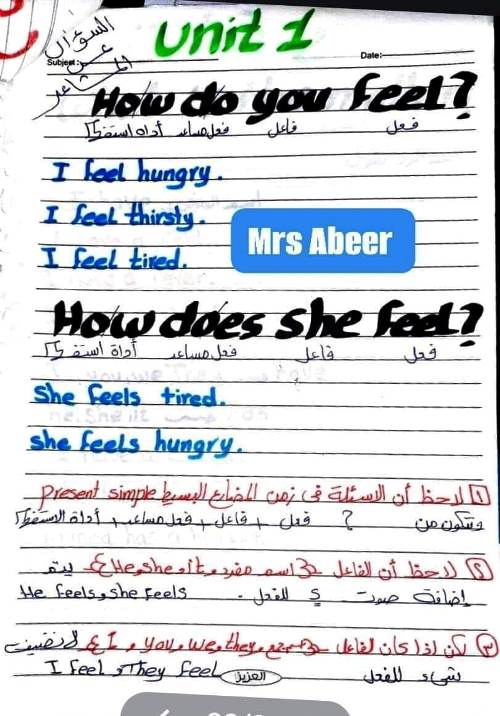 السؤال
عن
المشاعر
Unit 1
Subject:
Date:
How do you feel?
أداة استفهام فعل مساعد فاعل فعل
I feel hungry.
I feel thirsty.
Mrs Abeer
I feel tired.
How does she feel?
أداة استفهام فعل مساعد فاعل فعل
She feels tired.
She feels hungry.
1 لاحظ أن الاسئلة فى زمن المضارع البسيط present simple
وتتكون من ? فعل + فاعل + فعل مساعد + أداة الاستفهام
2 لاحظ أن الفاعل اسم مفرد و He, she, it يتم
إضافة صوت s للفعل. He feels, she feels
3 لكن إذا كان الفاعل جمع و I, you, we, they لا نضيف
شىء للفعل I feel, They feel
العزيز